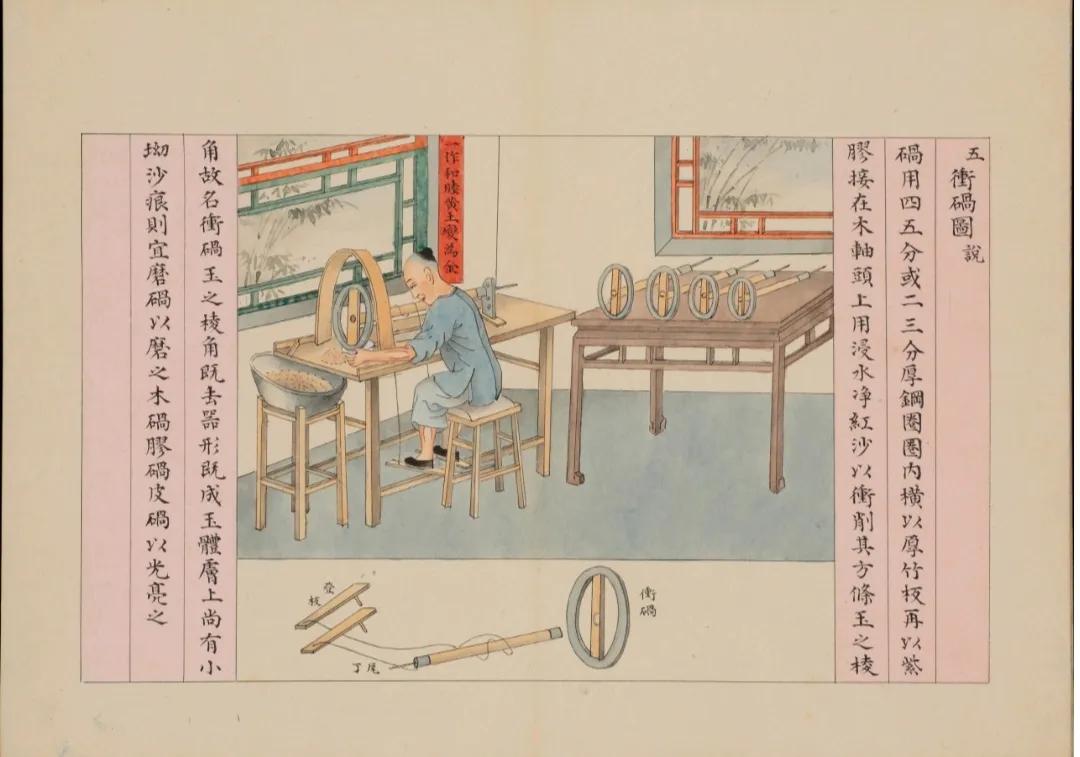 五衝碢圖說
碢用四五分或二三分厚鋼圈圈內橫以厚竹板再以紫
膠接在木軸頭上用浸水净紅沙以衝削其方條玉之棱
角故名衝碢玉之棱角既去器形既成玉體膚上尚有小
坳沙痕則宜磨碢以磨之木碢膠碢皮碢以光亮之
一作和睦黃土變為金
衝碢
登板
尾丁